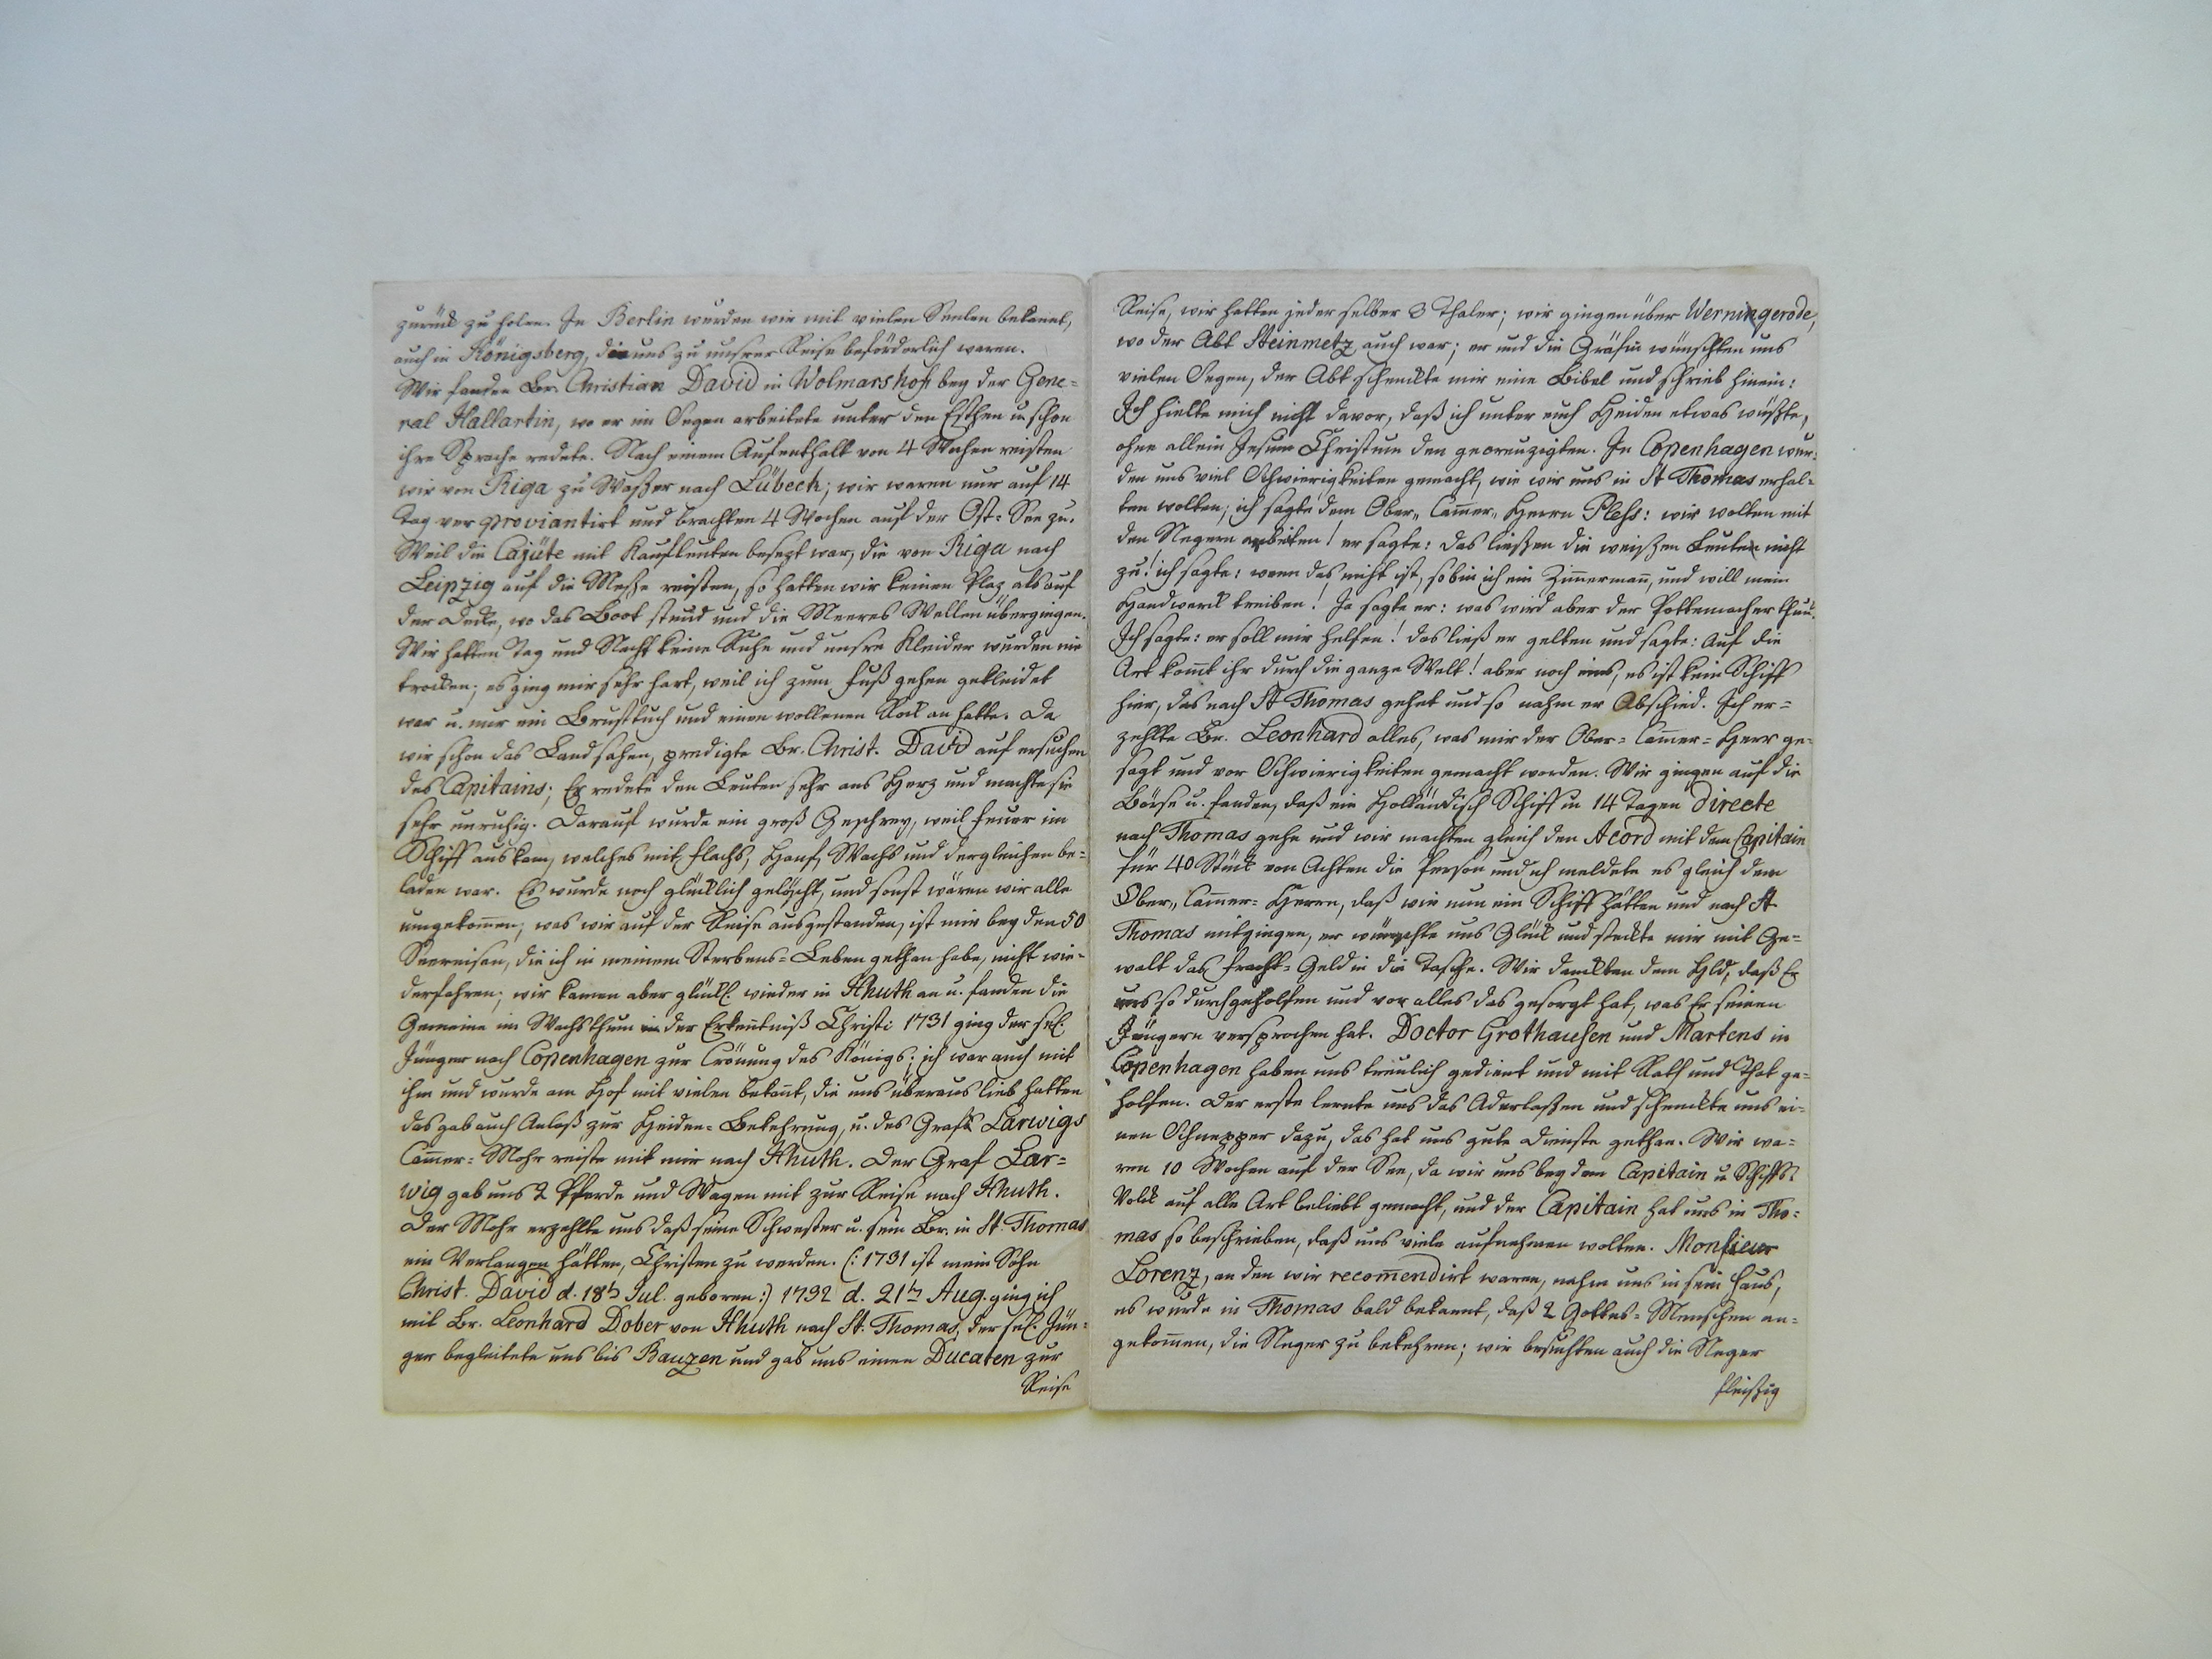 zurück zu holen. In Berlin wurden wir mit vielen Seelen bekannt,
auch in Königsberg, die uns zu unsrer Reise beförderlich waren.
Wir fanden Br. Christian David in Wolmarshoff bey der Gene-
ral Hallartin, wo er im Segen arbeitete unter den Esthen u. schon
ihre Sprache redete. Nach einem Aufenthalt von 4 Wochen reisten
wir von Riga zu Waßer nach Lübeck; wir waren nur auf 14
Tag ver proviantirt und brachten 4 Wochen auf der Ost-See zu.
Weil die Cajüte mit Kaufleuten besezt war, die von Riga nach
Leipzig auf die Meße reisten, so hatten wir keinen Plaz als auf
der Decke, wo das Boot stund und die Meeres Wellen übergingen.
Wir hatten Tag und Nacht keine Ruhe und unsre Kleider wurden nie
trocken; es ging mir sehr hart, weil ich zum Fuß gehen gekleidet
war u. nur ein Brusttuch und einen wollenen Rock an hatte. Da
wir schon das Land sahen, predigte Br. Christ. David auf ersuchen
des Capitains; Er redete den Leuten sehr ans Herz und machte sie
sehr unruhig. Darauf wurde ein groß Geschrey, weil Feuer im
Schiff aus kam, welches mit Flachs, Hanf, Wachs und dergleichen be-
laden war. Es wurde noch glücklich gelöscht, und sonst wären wir alle
umgekom̄en; was wir auf der Reise ausgestanden, ist mir bey den 50
Seereisen, die ich in meinem Sterbens-Leben gethan habe, nicht wie-
derfahren; wir kamen aber glückl. wieder in Hhuth an u. fanden die
Gemeine im Wachsthum in der Erkentniß Christi 1731 ging der sel.
Jünger nach Copenhagen zur Crönung des Königs; ich war auch mit
ihm und wurde am Hof mit vielen bekan̄t, die uns überaus lieb hatten
das gab auch Anlaß zur Heiden-Bekehrung, u. des Grafs Larwigs
Cam̄er-Mohr reiste mit mir nach Hhuth. Der Graf Lar-
wig gab uns 2 Pferde und Wagen mit zur Reise nach Hhuth.
Der Mohr erzehlte uns daß seine Schwester u. sein Br. in St. Thomas
ein Verlangen hätten, Christen zu werden. (: 1731 ist mein Sohn
Christ. David d. 18t. Jul. geboren :) 1732 d. 21tn Aug. ging ich
mit Br. Leonhard Dober von Hhuth nach St. Thomas, der sel. Jün-
ger begleitete uns bis Bauzen und gab uns einen Ducaten zur
Reise
Reise, wir hatten jeder selber 3 Thaler; wir gingen über Werningerode,
wo der Abt Steinmetz auch war; er und die Gräfin wünschten uns
vielen Segen, der Abt schenckte mir eine Bibel und schrieb hinein:
Ich hielte mich nicht davor, daß ich unter euch Heiden etwas wüßte,
ohne allein Jesum Christum den gecreuzigten. In Copenhagen wur-
den uns viel Schwierigkeiten gemacht, wie wir uns in St Thomas erhal-
ten wolten; ich sagte dem Ober- Cam̄er- Herrn Pless: wir wolten mit
den Negern arbeiten! er sagte: das ließen die weißen Leute nicht
zu! ich sagte: wenn das nicht ist, so bin ich ein Zim̄erman̄, und will mein
Handwerck treiben! Ja sagte er: was wird aber der Pottemacher thun.
Ich sagte: er soll mir helfen! das ließ er gelten und sagte: Auf die
Art kom̄t ihr durch die ganze Welt! aber noch eins; es ist kein Schiff
hier, das nach St Thomas gehet und so nahm er Abschied. Ich er-
zehlte Br. Leonhard alles, was mir der Ober-Cam̄er-Herr ge-
sagt und vor Schwierigkeiten gemacht worden. Wir gingen auf die
Börse u. fanden, daß ein Holländisch Schiff in 14 Tagen directe
nach Thomas gehe und wir machten gleich den Acord mit dem Capitain
für 40 Stück von Achten die Person und ich meldete es gleich dem
Ober- Cam̄er- Herrn, daß wir nun ein Schiff hätten und nach St
Thomas mitgingen, er wünschte uns Glück und steckte mir mit Ge-
walt das Fracht-Geld in die Tasche. Wir danckten dem Hld, daß Er
uns so durchgeholfen und vor alles das gesorgt hat, was Er seinen
Jüngern versprochen hat. Doctor Grothausen und Martens in
Copenhagen haben uns treulich gedient und mit Rath und That ge-
holfen. Der erste lernte uns das Aderlaßen und schenckte uns ei-
nen Schnepper dazu, das hat uns gute Dienste gethan. Wir wa-
ren 10 Wochen auf der See, da wir uns bey dem Capitain u Schiffs-
Volck auf alle Art beliebt gemacht, und der Capitain hat uns in Tho-
mas so beschrieben, daß uns viele aufnehmen wolten. Monsieur
Lorenz, an den wir recom̄endirt waren, nahm uns in sein Haus,
es wurde in Thomas bald bekannt, daß 2 Gottes-Menschen an-
gekom̄en, die Neger zu bekehren; wir besuchten auch die Neger
fleißig